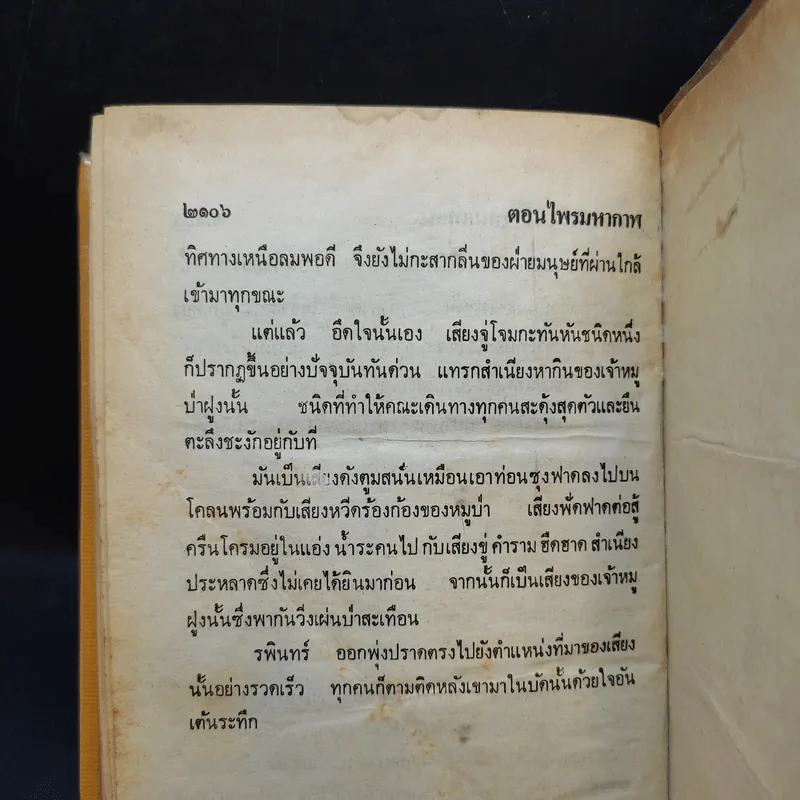 ๒๑๐๖ ตอนไพรมหากาฬ
ทิศทางเหนือลมพอดี จึงยังไม่กะสากลิ่นของฝ่ายมนุษย์ที่ผ่านใกล้
เข้ามาทุกขณะ
แต่แล้ว อึดใจนั้นเอง เสียงจู่โจมกะทันหันชนิดหนึ่ง
ก็ปรากฏขึ้นอย่างปัจจุบันทันด่วน แทรกสำเนียงหากินของเจ้าหมู
ป่าฝูงนั้น ชนิดที่ทำให้คณะเดินทางทุกคนสะดุ้งสุดตัวและยืน
ตะลึงชะงักอยู่กับที่
มันเป็นเสียงดังตูมสนั่นเหมือนเอาท่อนซุงฟาดลงไปบน
โคลนพร้อมกับเสียงหวีดร้องก้องของหมูป่า เสียงฟัดฟาดต่อสู้
ครืนโครมอยู่ในแอ่ง น้ำระคนไป กับเสียงขู่ คำราม ฮึดฮาด สำเนียง
ประหลาดซึ่งไม่เคยได้ยินมาก่อน จากนั้นก็เป็นเสียงของเจ้าหมู
ฝูงนั้นซึ่งพากันวิ่งเผ่นป่าสะเทือน
รพินทร์ ออกพุ่งปราดตรงไปยังตำแหน่งที่มาของเสียง
นั้นอย่างรวดเร็ว ทุกคนก็ตามติดหลังเขามาในบัดนั้นด้วยใจอัน
เต้นระทึก